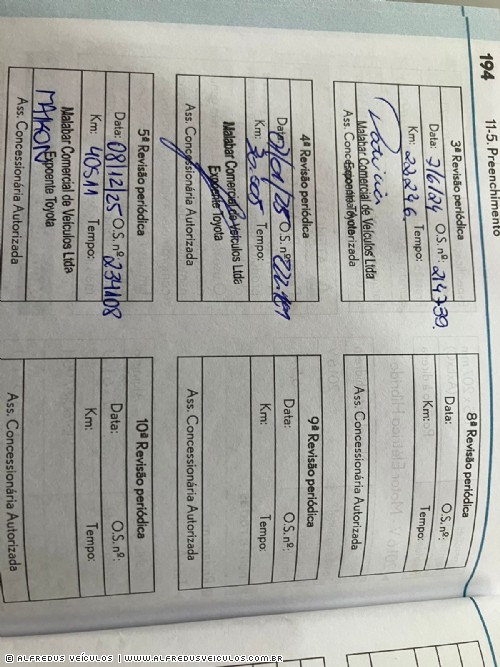 194
11-5. Preenchimento
3ª Revisão periódica
Data: 7/6/24 O.S. nº: 214739.
Km: 22296 Tempo:
Malabar Comercial de Veículos Ltda
Ass. Concessionária Autorizada
4ª Revisão periódica
Data: O.S. nº:
Km: Tempo:
Malabar Comercial de Veículos Ltda
Expoente Toyota
Ass. Concessionária Autorizada
5ª Revisão periódica
Data: 08/12/25 O.S. nº: 234108
Km: 40511 Tempo:
Malabar Comercial de Veículos Ltda
Expoente Toyota
Ass. Concessionária Autorizada
8ª Revisão periódica
Data: O.S. nº:
Km: Tempo:
Ass. Concessionária Autorizada
9ª Revisão periódica
Data: O.S. nº:
Km: Tempo:
Ass. Concessionária Autorizada
10ª Revisão periódica
Data: O.S. nº:
Km: Tempo:
Ass. Concessionária Autorizada
© ALFREDUS VEÍCULOS | WWW.ALFREDUSVEICULOS.COM.BR